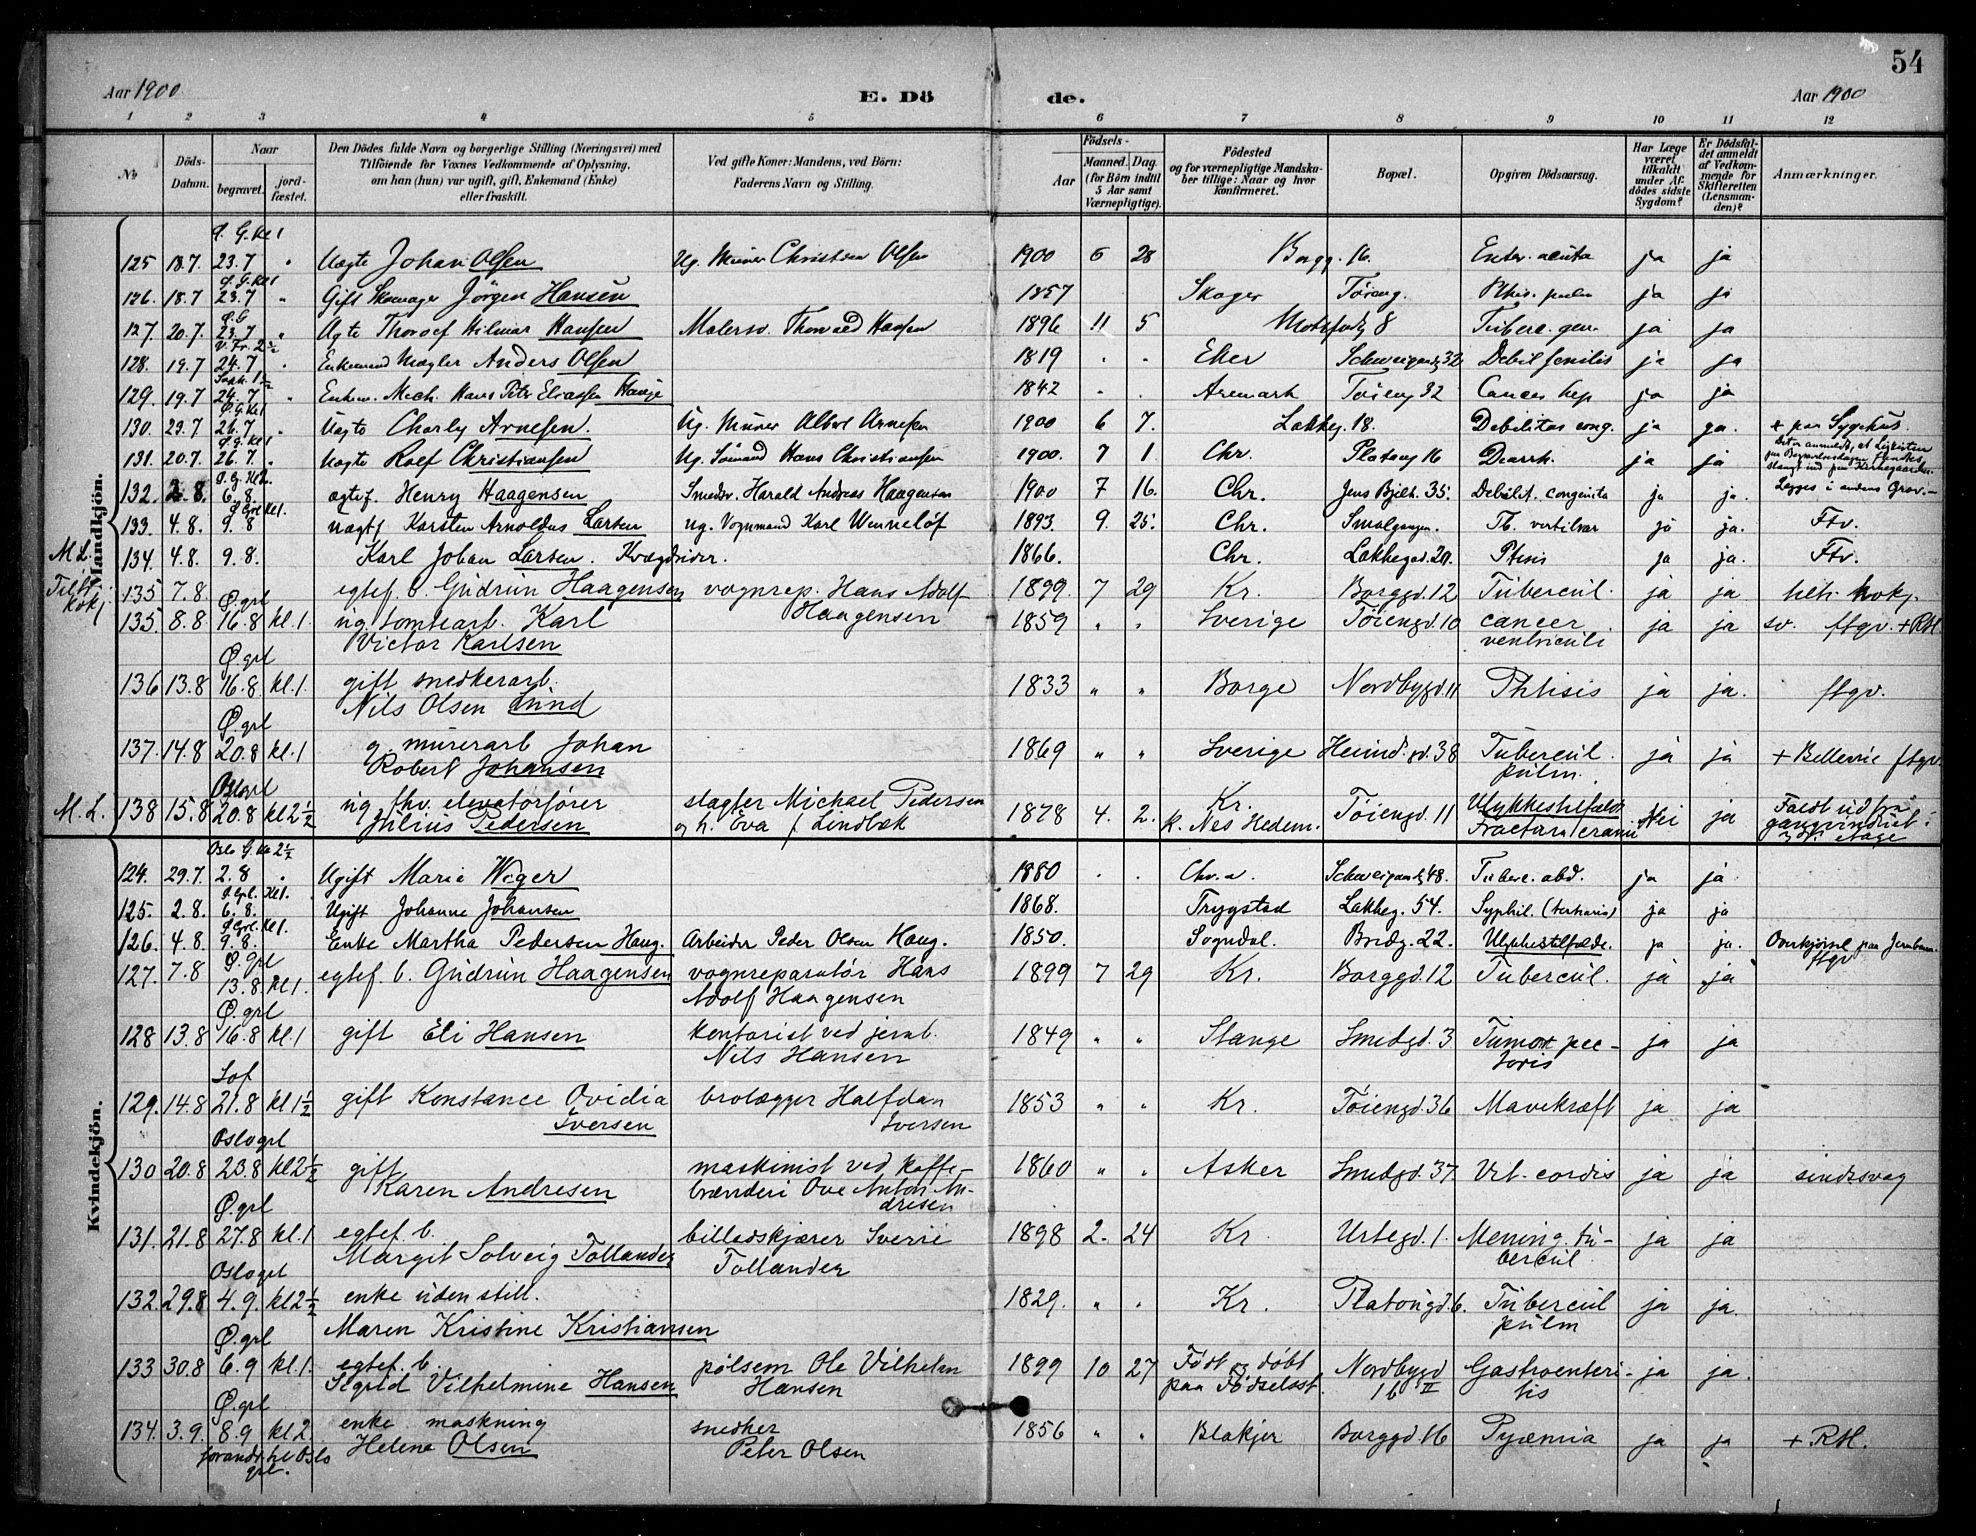 54
Aar 1900 E. Dö de. Aar 1900
1 2 3 4 5 6 7 8 9 10 11 12
No
Döds-Datum.
Naar begravet. jordfæstet.
Den Dödes fulde Navn og borgerlige Stilling (Næringsvei) med
Tilföiende for Voxnes Vedkommende af Oplysning,
om han (hun) var ugift, gift, Enkemand (Enke)
eller fraskilt.
Ved gifte Koner: Mandens, ved Börn:
Faderens Navn og Stilling.
Födsels-
Aar Maaned. Dag.
(for Börn indtil
5 Aar samt
Værnepligtige).
Födested
og for værnepligtige Mandskaber tillige: Naar og hvor
Konfirmeret.
Bopæl.
Opgiven Dödsaarsag.
Har Læge
været
tilkaldt
under Afdödes sidste
Sygdom?
Er Dödsfaldet anmeldt
af Vedkommende for
Skifteretten
(Lensmanden)?
Anmærkninger.
Mandkjön.
Ø. G. Kl 1
125 18.7. 23.7 " Uægte Johan Olsen Ug. Murer Christian Olsen 1900 6 28 Borgg. 16. Enter. acuta ja ja
Ø. G. Kl 1
126. 18.7 23.7 " Gift Skomager Jörgen Hansen 1857 Skoger Töieng. Phis. pulm ja ja
Ø. G
127. 20.7. 23.7 " Ægte Thorolf Hilmar Hansen Malersv. Thorvald Hansen 1896 11 5 8 Tuberc. gen. ja ja
V. Fr. 2½
128. 19.7 24.7 " Enkemand Mægler Anders Olsen 1819 . . Eker Schweigaardsg 32 Debil senilis ja ja
129. 19.7 24.7 " Enkem. Mech. Hans Petr Eliassen Hauge 1842 . . Aremark Töieng 32 Cancer hep ja ja
Ø. G. Kl 1
130. 23.7 26.7 " Uægte Charly Arnesen. Ug. Murer Albert Arnesen 1900 6 7. Lakkeg. 18. Debilitas cong. ja ja. + paa Sygehus.
Ø. G. Kl 1
131. 20.7. 26.7. " Uægte Rolf Christiansen Ug. Sömand Hans Christiansen 1900. 7 1 Chr. Platoug 16 Diarrh. ja ja
Ø. G. Kl 2.
132. 2.8. 6.8. ægtef. Henry Haagensen Smedsv. Harald Andreas Haagensen 1900 7 16. Chr. Jens Bjelk. 35. Debilit. congenita ja ja. Lægges i andens Grav.-
Ø Grl Kl 1.
133. 4.8. 9.8 uægtf Karsten Arnoldus Larsen ug. Vognmand Karl Wenneløf 1893. 9. 25. Chr. Smalgangen. Tb. vertebrar ja ja. Ftv.
M L. 134. 4.8. 9.8. Karl Johan Larsen. Kvægdriver. 1866. Chr. Lakkegad. 20. Ptisis ja ja. Ftv.
135 7.8. egtef. b. Gudrun Haagensen vognrep. Hans Adolf Haagensen 1899. 7 29 Kr. Borggd. 12 Tubercul. ja ja
Ø. grl
135. 8.8 16.8 kl. 1. ug. tomtearb. Karl
Victor Karlsen 1859 " " Sverige Töiengd. 10 cancer
ventriculi ja ja sv. ftgv. + RH.
Ø. grl
136 13.8 16.8 kl. 1. gift snedkerarb.
Nils Olsen Lund 1833 " " Borge Nordbygd. 11 Phtisis ja ja. ftgv.
Ø. grl
137. 14.8 20.8 kl. 1 g. murerarb Johan
Robert Johansen 1869 " " Sverige Heimd. gd. 38 Tubercul.
pulm. ja ja + Bellevue ftgv.
Oslo grl
M. L. 138 15.8 20.8 kl 2½ ug. fhv. elevatorförer
Julius Pedersen slagter Michael Pedersen
og h. Eva f. Lindbæk 1878 4. 2. Kr.
k. Nes Hedem. Töiengd. 11 Ulykkestilfælde
Fractura cranii Nei ja Faldt ud fra
gangvinduet i
3die etage
Kvindekjön.
Oslo G. Kl 2½
124. 29.7. 2.8 " Ugift Marie Weger 1880 . . Chr.a. Schweigaardsg 48. Tuberc. abd. ja ja.
Ø. Grl. Kl 1.
125. 2.8. 6.8. Ugift Johanne Johansen 1868. Trygstad Lakkeg. 54. Syphil. (tertiaria) ja ja
Ø Grl. Kl 1.
126. 4.8. 9.8. Enke Martha Pedersen Haug. Arbeider Peder Olsen Haug. 1850. Sogndal. Bredg. 22. Ulykkestilfælde. ja ja. Overkjörsel paa Jernbanen.
ftgv
Ø. grl
127. 7.8 13.8 kl 1. egtef. b. Gudrun Haagensen vognreparatör Hans
Adolf Haagensen 1899 7 29 Kr. Borggd. 12 Tubercul. ja ja
Ø. grl
128 13.8 16.8 kl. 1 gift Eli Hansen kontorist ved jernb.
Nils Hansen 1849 " " Stange Smedgd. 3 Tumor pectoris ja ja
Sof
129. 14.8 21.8 kl 1½ gift Konstance Ovidia
Iversen brolægger Halfdan
Iversen 1853 " " Kr. Töiengd. 36 Mavekræft ja ja
Oslo grl
130 20.8 23.8 kl 2½ gift
Karen Andresen maskinist ved kaffe-
brænderi Ove Anton An-
dresen 1860 " " Asker Smedgd. 37. Vit. cordis ja ja sindssvag
Ø. grl
131. 21.8 27.8 kl. 1 egtef. b.
Margit Solveig Tollander billedskjærer Sverre
Tollander 1898 2. 24 Kr. Urtegd. 1. Mening. tu-
bercul. ja ja
Oslo grl
132. 29.8 4.9. kl 2½ enke uden still.
Maren Kristine Kristiansen 1829. " " Kr. Platougd. 6. Tubercul
pulm ja ja.
Ø. grl
133 30.8 6.9 kl. 1. egtef. b.
Sigrid Vilhelmine Hansen pölsem. Ole Vilhelm
Hansen 1899 10 27 Födt og döbt
paa Födselsst. Nordbygd
16 II Gastroenteri-
tis ja ja.
Ø. grl
134. 3.9. 8.9 kl 2. enke maskning
Helene Olsen snedker
Peter Olsen 1856 " " Blakjer Borggd. 16 Pyæmia ja ja + RH.
forandr. til Oslo
grl.